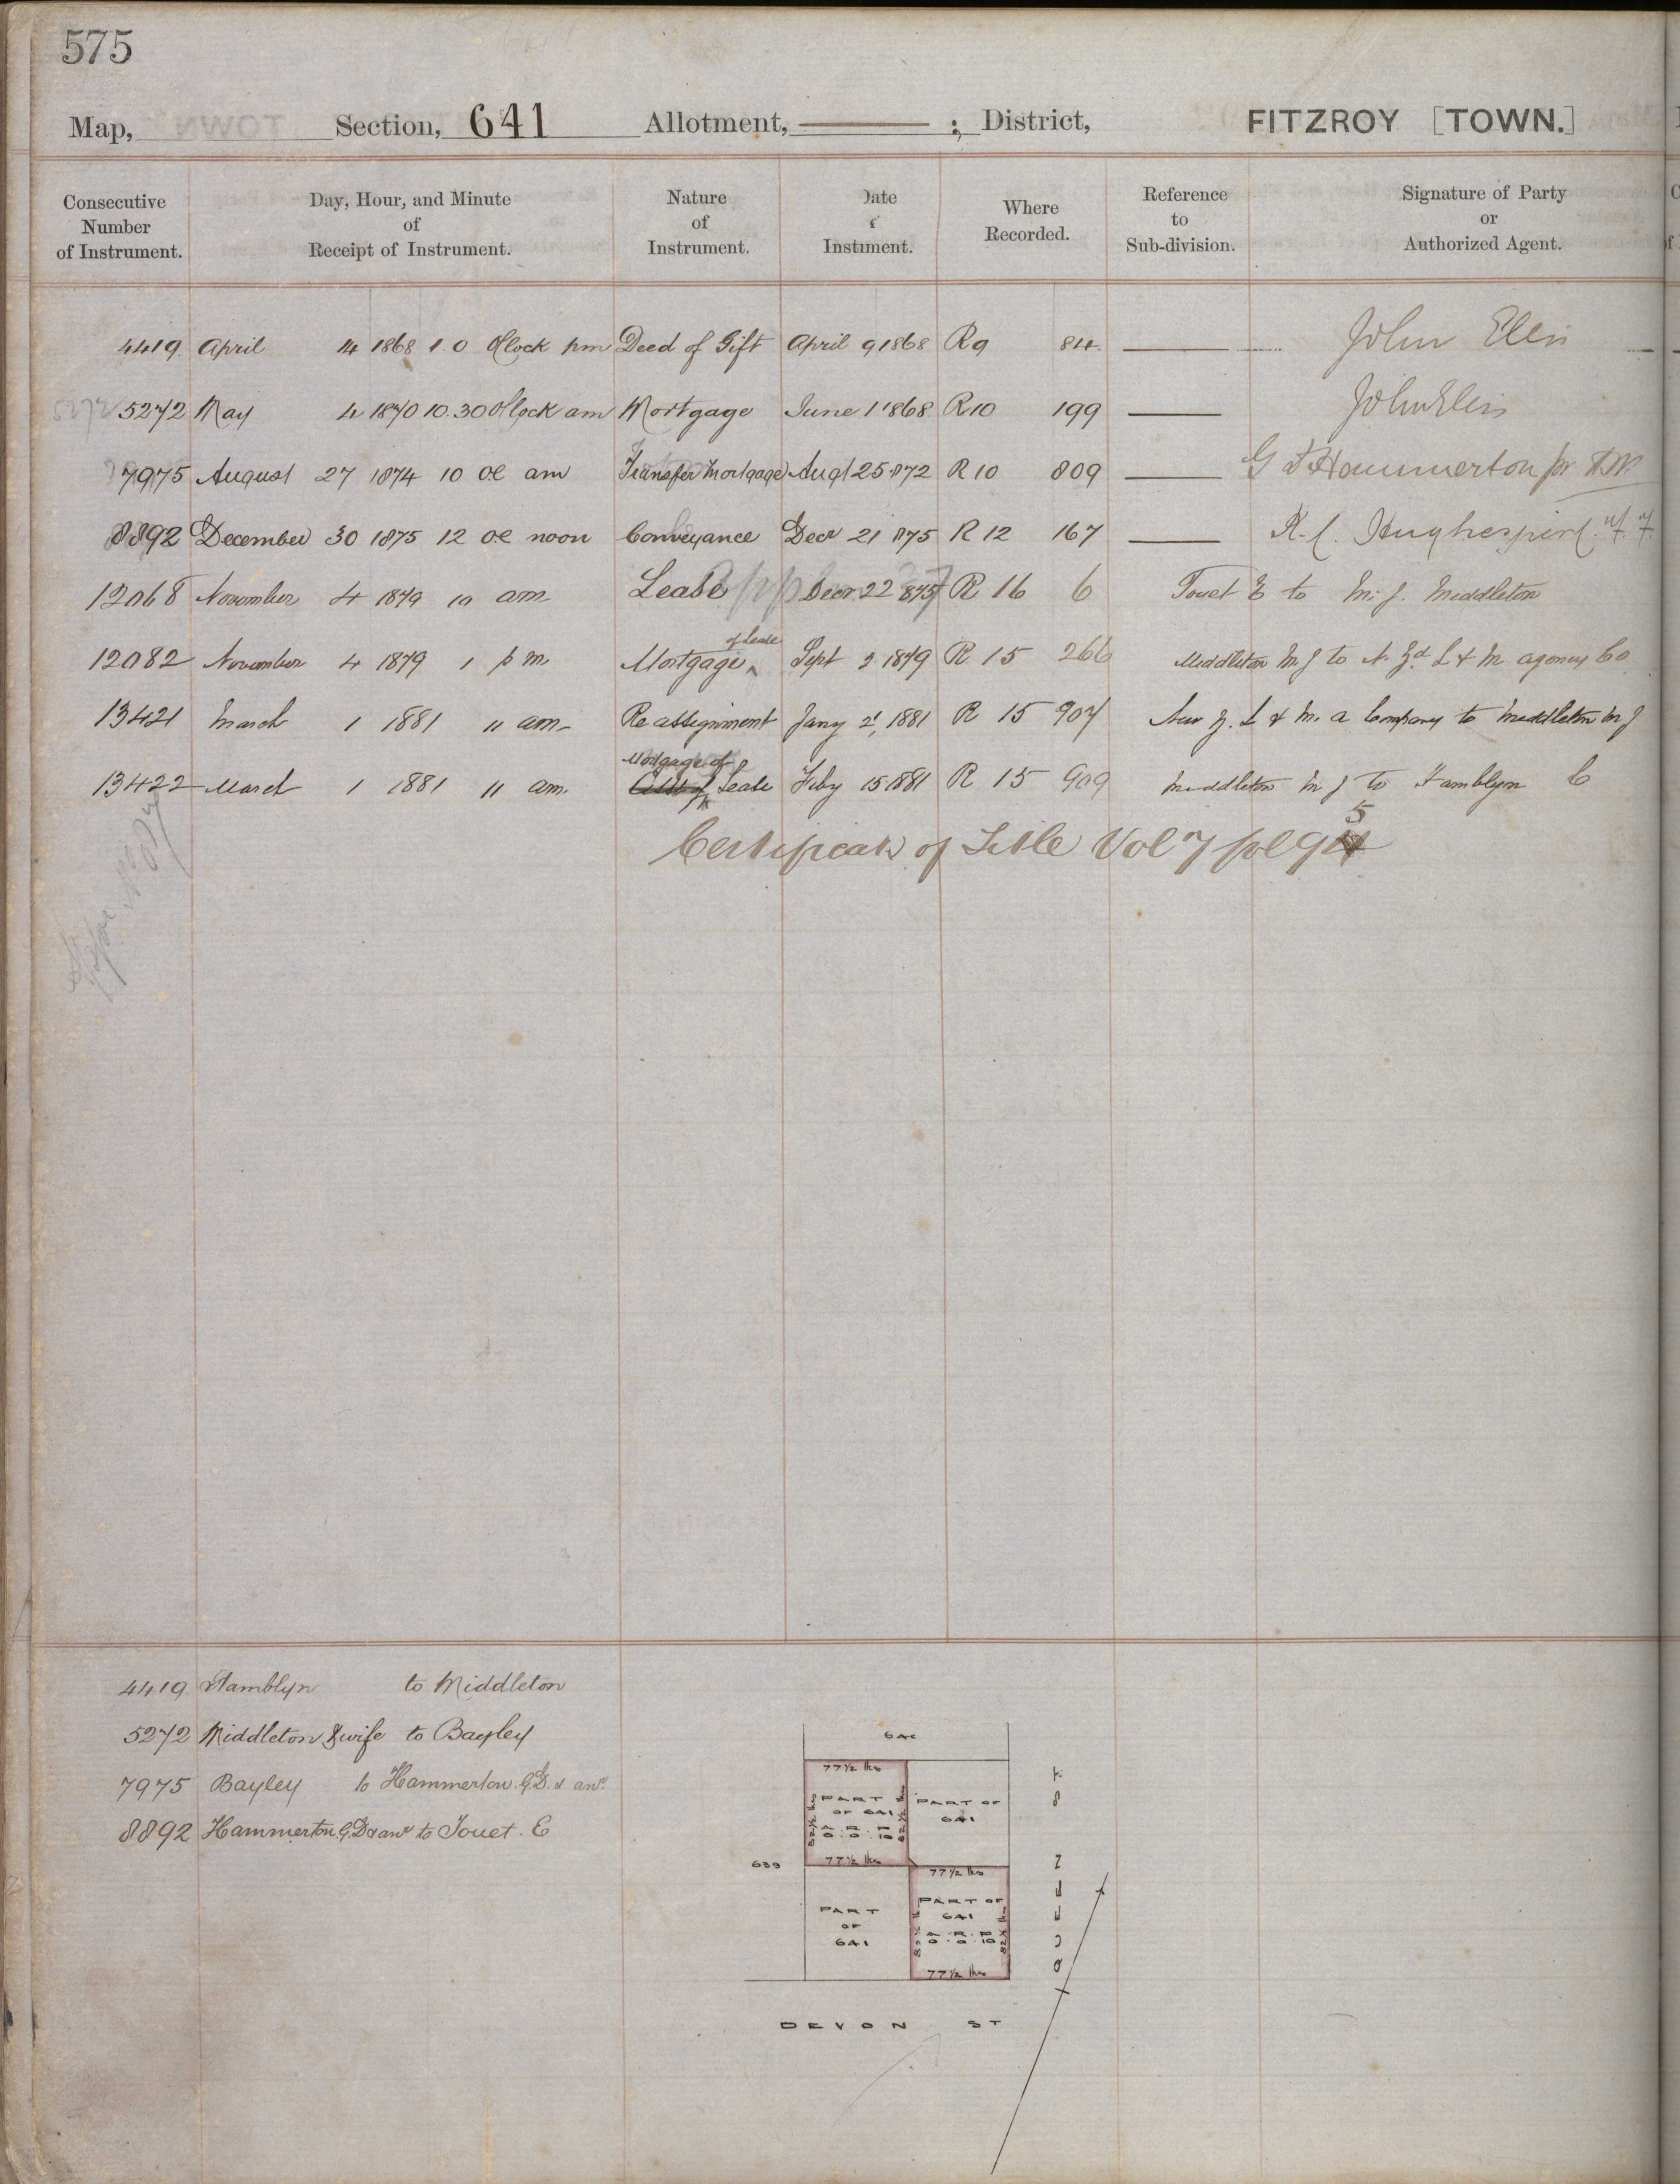 575
Map, Section, 641 Allotment, ——— ; District, FITZROY [TOWN.]
Consecutive Number of Instrument. Day, Hour, and Minute of Receipt of Instrument. Nature of Instrument. Date of Instument. Where Recorded. Reference to Sub-division. Signature of Party or Authorized Agent.
4419 April 14 1868 1.0 O'Clock pm Deed of Gift April 9 1868 R9 814 John Ellis
5272 5272 May 4 1870 10.30 O'Clock am Mortgage June 1 1868 R10 199 John Ellis
7975 August 27 1874 10 OC am Transfer Mortgage Augt 25 1872 R10 809 G D Hammerton
8892 December 30 1875 12 OC noon Conveyance Decr 21 1875 R 12 167 Hughes
12068 November 4 1879 10 am Lease Decr 22 R 16 6 Touet E to M. J. Middleton
12082 November 4 1879 1 p m Mortgage of Lease Sept 2 1879 R 15 266 Middleton M J to N. Zd. L & M agency Co
13421 March 1 1881 11 am Re assignment Jany 21, 1881 R 15 907 New Z. L & M. a Company to Middleton M J
13422 March 1 1881 11 am Mortgage of Lease Feby 15 1881 R 15 909 Middleton M J to Hamblyn C
Certificate of Title Vol 7 fol 95
4419 Hamblyn to Middleton
5272 Middleton & wife to Bayley
7975 Bayley to Hammerton. G.D. & anr.
8892 Hammerton G.D & anr to Touet. E
640
77½ lks
PART OF 641
82½ lks
82½ lks
A. R. P
0 . 0 . 10
77½ lks
PART OF 641
639
PART OF 641
77½ lks
PART OF 641
82½ lks
82½ lks
A. R. P
0 . 0 . 10
77½ lks
DEVON ST